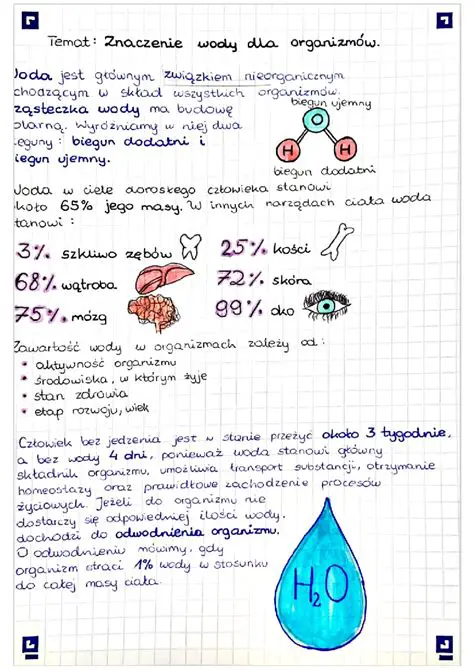 Temat: Znaczenie wody dla organizmów.
Woda jest głównym związkiem nieorganicznym
chodzącym w skład wszystkich organizmów.
ząsteczka wody ma budowę
olarną. Wyróżniamy w niej dwa
eguny: biegun dodatni i
iegun ujemny.
biegun ujemny
O
H H
biegun dodatni
Woda w ciele dorosłego człowieka stanowi
około 65% jego masy. W innych narządach ciała woda
tanowi:
3% szkliwo zębów 25% kości
68% wątroba 72% skóra
75% mózg 99% oko
Zawartość wody w organizmach zależy od:
• aktywność organizmu
• środowiska, w którym żyje
• stan zdrowia
• etap rozwoju, wiek
Człowiek bez jedzenia jest w stanie przeżyć około 3 tygodnie,
a bez wody 4 dni, ponieważ woda stanowi główny
składnik organizmu, umożliwia transport substancji, otrzymanie
homeostazy oraz prawidłowe zachodzenie procesów
życiowych. Jeżeli do organizmu nie
dostarczy się odpowiedniej ilości wody,
dochodzi do odwodnienia organizmu.
O odwodnieniu mówimy, gdy
organizm straci 1% wody w stosunku
do całej masy ciała.
H₂O